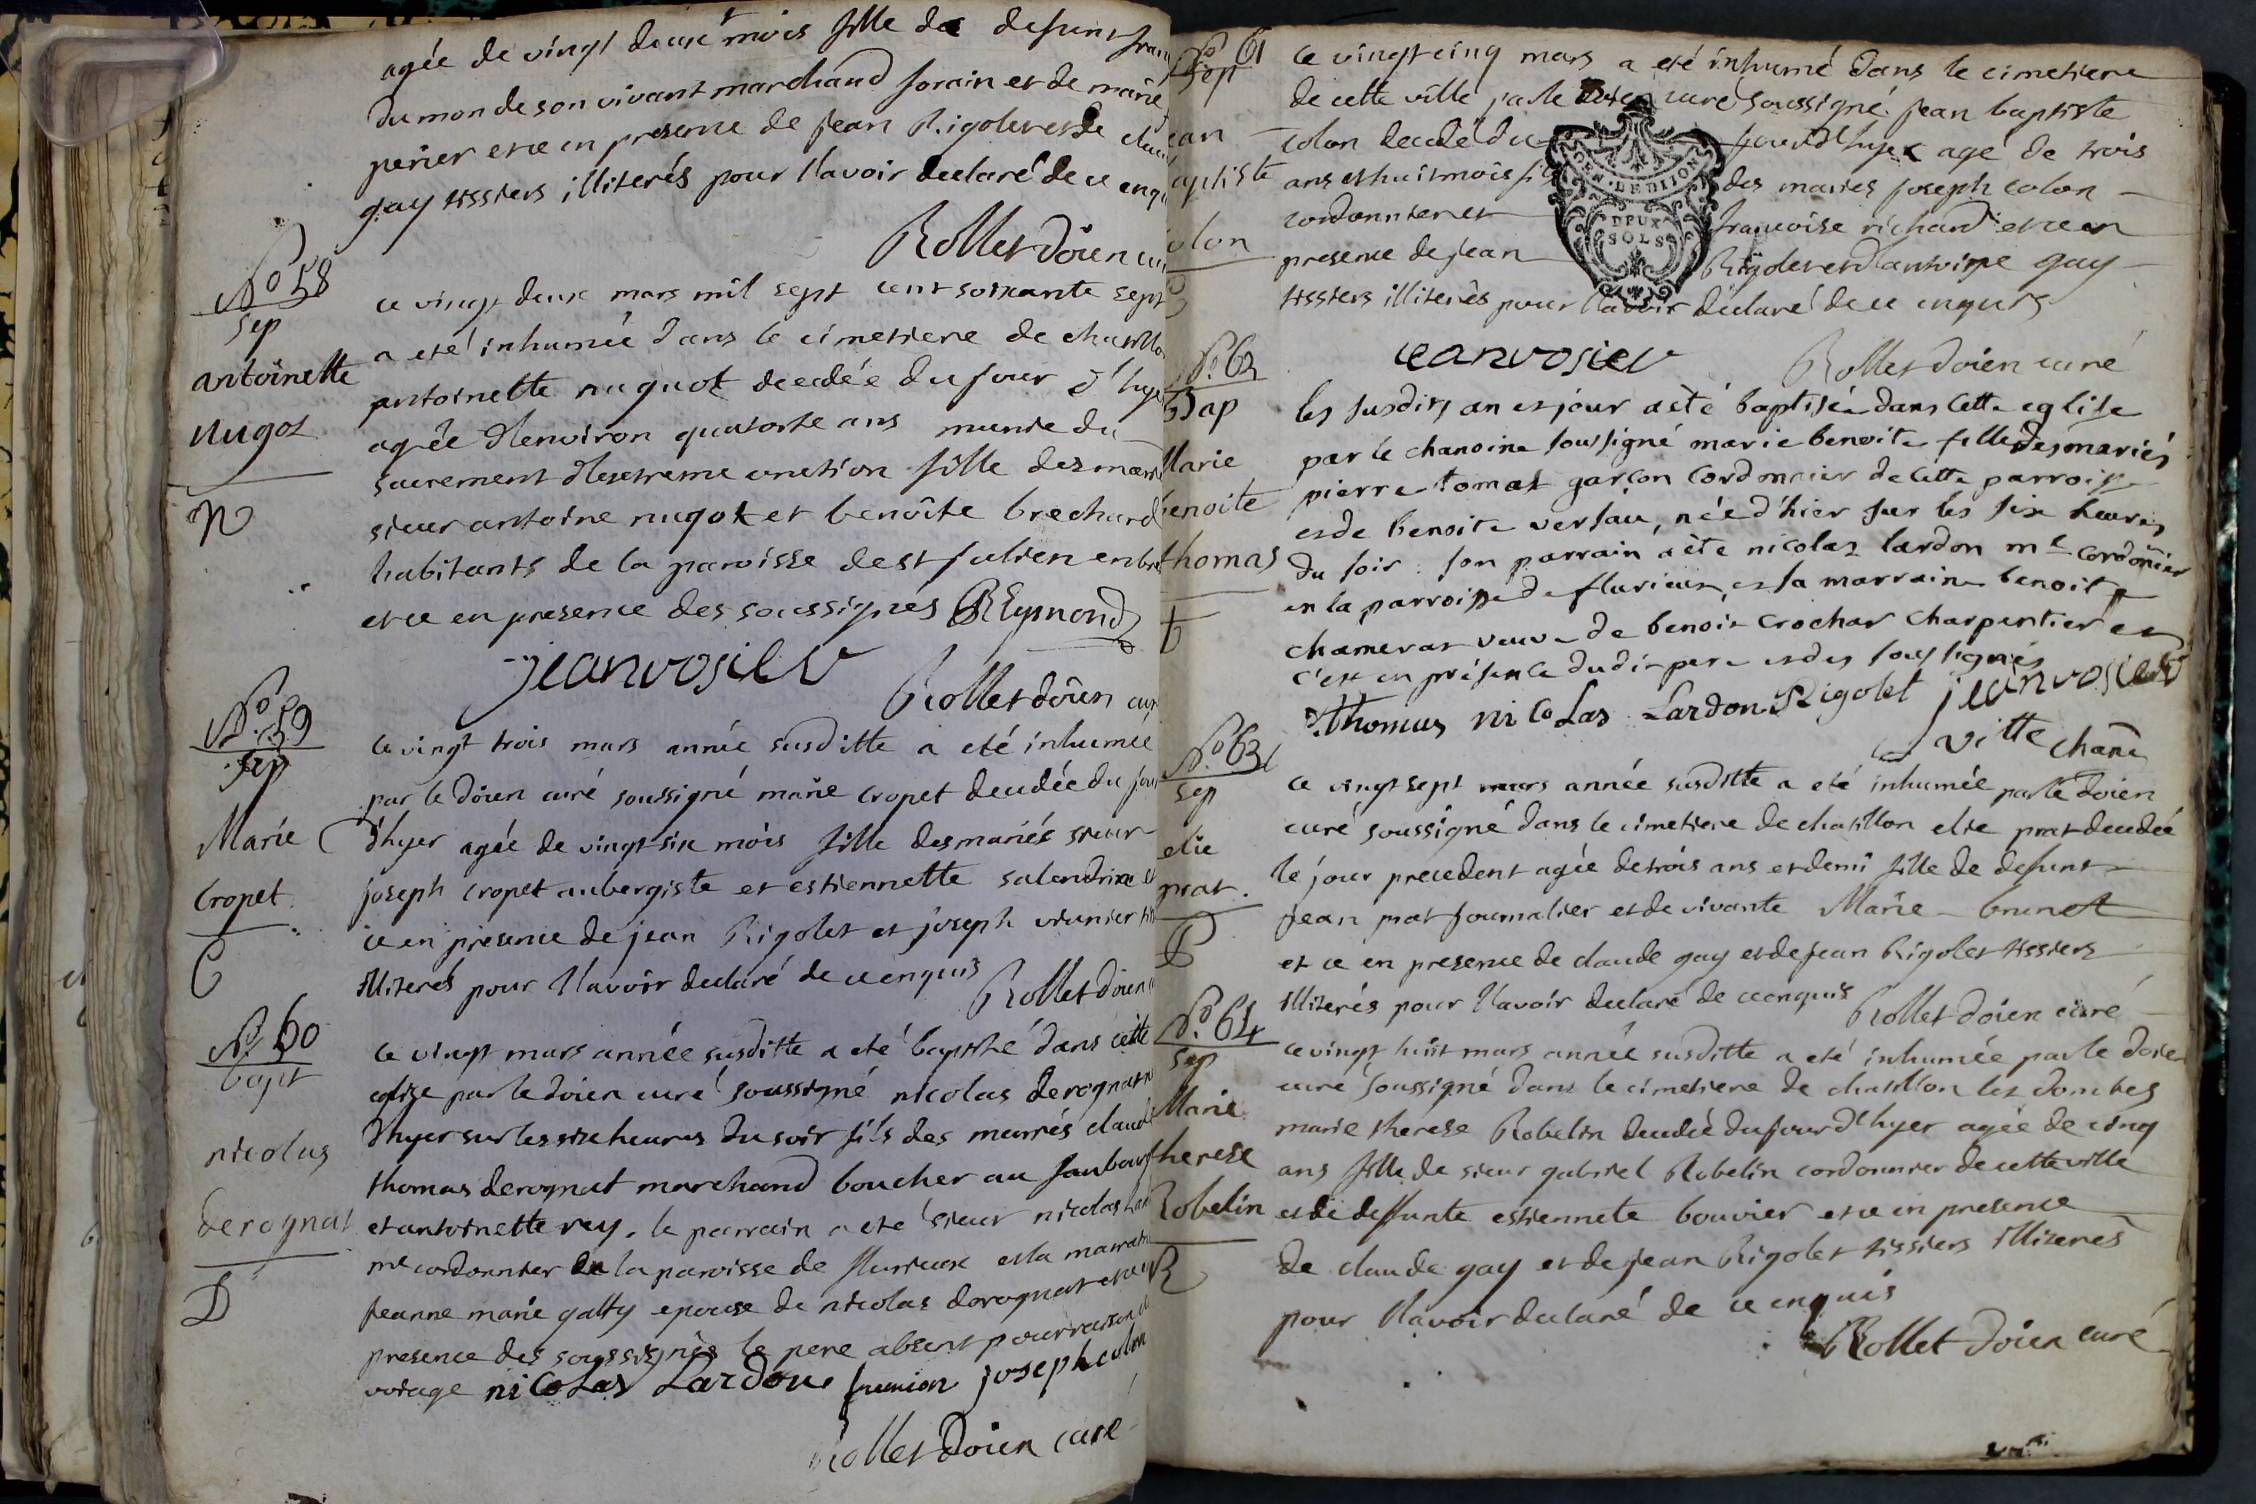 agée de vingt deux mois fille de defunt
dumon de son vivant marchand forain et de marie
perier et ce en presence de jean Rigolet et de
gay tissiers illiterés pour l'avoir declaré de ce enq
Rollet doïen cu
No 58
sep
antoïnette
nugot
N
ce vingt deux mars mil sept cent soixante sept
a eté inhumée dans le cimetiere de chatillo
antoinette nuguot decedée du jour d'hyer
agée d'environ quatorse ans munie du
sacrement d'extreme onction fille des mariés
sieur antoine nugot et benoîte brechard
habitants de la paroisse de st julien
et ce en presence des soussignés REymond
jeanvosiev
Rollet doïen curé
No 59
sep
Marie
Cropet
C
ce vingt trois mars année susditte a eté inhumée
par le doïen curé soussigné marie cropet decedée du jour
d'hyer agée de vingt six mois fille des mariés sieur
joseph cropet aubergiste et estiennette salendrix
ce en presence de jean Rigolet et joseph
illiterés pour l'avoir declaré de ce enquis
Rollet doïen
No 60
bapt
nicolas
derognat
D
ce vingt mars année susditte a eté baptisé dans cette
eglise par le doïen curé soussigné nicolas derognat
d'hyer sur les six heures du soir fils des mariés claude
thomas derognat marchand boucher au faubourg
et antoinette rey. le parrain a eté sieur nicolas
me cordonnier de la paroisse de flurieux et la marraine
jeanne marie galty epouse de nicolas derognat et ce en
presence des soussignés le pere absent pour raison de
voïage nicolas Lardon joseph colon
Rollet doïen curé
No 61
sep
jean
baptiste
colon
ce vingt cinq mars a eté inhumé dans le cimetiere
de cette ville par le doïen curé soussigné jean baptiste
colon decedé du jour d'hyer agé de trois
ans et huit mois fils des mariés joseph colon
cordonnier et françoise richard et ce en
presence de jean Rigolet et d'antoine gay
tissiers illiterés pour l'avoir declaré de ce enquis
GEN. DE DIJON
DEUX
SOLS
jeanvosiev
Rollet doïen curé
No. 62
Bap
Marie
benoite
thomas
t
les susdits an et jour a été baptisée dans cette eglise
par le chanoine soussigné marie benoite fille des mariés
pierre tomas garçon cordonnier de cette parroisse
et de benoite versau, née d'hier sur les six heures
du soir. son parrain a été nicolas lardon me cordonnier
en la parroisse de flurieux, et sa marraine benoite
chamerat veuve de benoit crochar charpentier et
c'est en présence dudit pere et des soussignés
thomas nicolas Lardon Rigolet jeanvosiev
vitte chane
No 63
sep
elie
prat.
P
ce vingt sept mars année susditte a eté inhumée par le doïen
curé soussigné dans le cimetiere de chatillon elie prat decedée
le jour precedent agée de trois ans et demi fille de defunt
jean prat journalier et de vivante Marie brunet
et ce en presence de claude gay et de jean Rigolet tissiers
illiterés pour l'avoir declaré de ce enquis
Rollet doïen curé
No. 64
sep
Marie
therese
Robelin
R
ce vingt huit mars année susditte a eté inhumée par le doïen
curé soussigné dans le cimetiere de chatillon les dombes
marie therese Robelin decedée du jour d'hyer agée de cinq
ans fille de sieur gabriel Robelin cordonnier de cette ville
et de deffunte estiennete bouvier et ce en presence
de claude gay et de jean Rigolet tissiers illiterés
pour l'avoir declaré de ce enquis
Rollet doïen curé